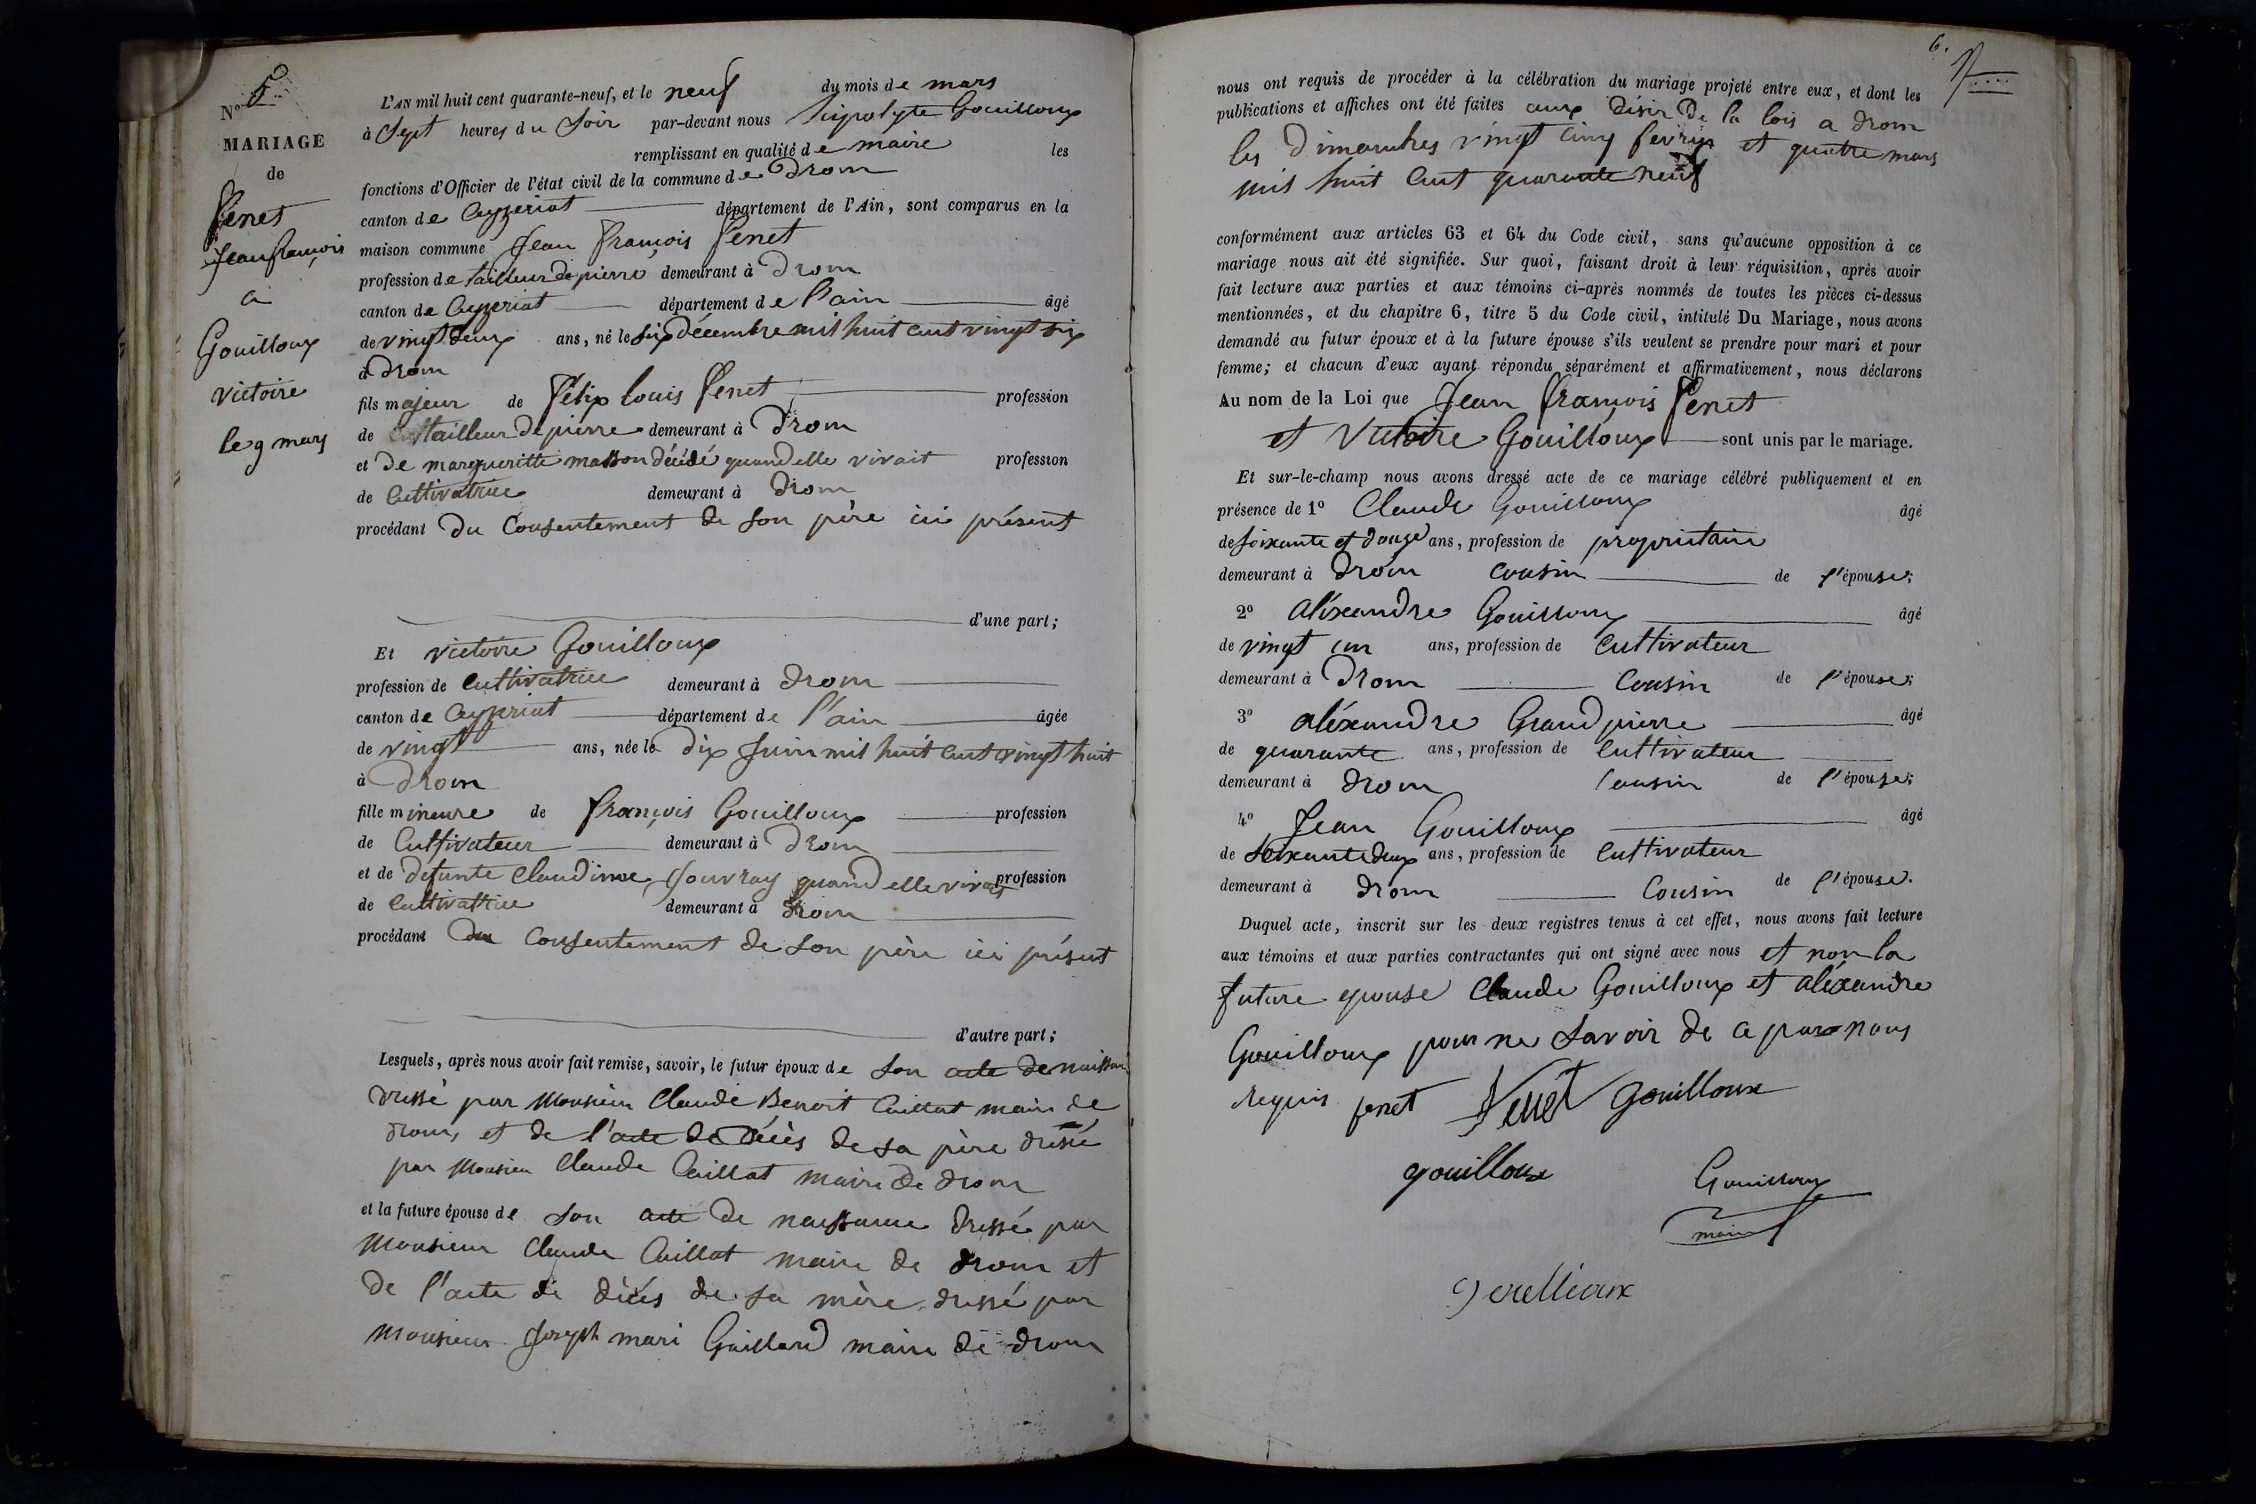 N° 5
MARIAGE
de
Fenet
Jean françois
a
Gouilloux
victoire
le 9 mars
L'AN mil huit cent quarante-neuf, et le neuf du mois de mars
à Sept heures du Soir par-devant nous hipolyte Gouilloux
remplissant en qualité de maire les
fonctions d'Officier de l'état civil de la commune de Drom
canton de Ceyzeriat département de l'Ain, sont comparus en la
maison commune Jean François Fenet
profession de tailleur de pierre demeurant à Drom
canton de Ceyzeriat département de l'ain âgé
de vingt deux ans, né le six décembre mil huit cent vingt six
à Drom
fils majeur de Félix Louis Fenet profession
de tailleur de pierre demeurant à Drom
et De margueritte masson décédé quand elle vivait profession
de Cultivatrice demeurant à Drom
procédant Du Consentement de Son père ici présent
d'une part;
Et victoire Gouilloux
profession de Cultivatrice demeurant à Drom
canton de Ceyzeriat département de l'ain âgée
de vingt ans, née le dix Juin mil huit cent vingt huit
à Drom
fille mineure de françois Gouilloux profession
de Cultivateur demeurant à Drom
et de defunte Claudine Convray quand elle vivait profession
de Cultivattrice demeurant à Drom
procédant Du Consentement de Son père ici présent
d'autre part;
Lesquels, après nous avoir fait remise, savoir, le futur époux de Son acte de naissan
dressé par Monsieur Claude Benoit Caillat maire de
drom, et de l'acte de décès de sa père dressé
par Monsieu Claude Caillat maire de drom
et la future épouse de Son acte de naissance dressé par
Monsieur Claude Caillat maire de drom et
de l'acte de décés de sa mère dressé par
Monsieur Joseph mari Gaillard maire de drom
6.
nous ont requis de procéder à la célébration du mariage projeté entre eux, et dont les
publications et affiches ont été faites aux désir De la lois a drom
les Dimanches vingt cinq fevrier et quattre mars
mil huit cent quarante neuf
conformément aux articles 63 et 64 du Code civil, sans qu'aucune opposition à ce
mariage nous ait été signifiée. Sur quoi, faisant droit à leur réquisition, après avoir
fait lecture aux parties et aux témoins ci-après nommés de toutes les pièces ci-dessus
mentionnées, et du chapitre 6, titre 5 du Code civil, intitulé Du Mariage, nous avons
demandé au futur époux et à la future épouse s'ils veulent se prendre pour mari et pour
femme; et chacun d'eux ayant répondu séparément et affirmativement, nous déclarons
Au nom de la Loi que Jean François Fenet
et Victoire Gouilloux sont unis par le mariage.
Et sur-le-champ nous avons dressé acte de ce mariage célébré publiquement et en
présence de 1° Claude Gouilloux âgé
de soixante et douze ans, profession de propriétaire
demeurant à Drom cousin de l'épouse;
2° aléxandre Gouilloux âgé
de vingt un ans, profession de Cultivateur
demeurant à Drom Cousin de l'épouse;
3° aléxandre Grandpierre âgé
de quarante ans, profession de Cultivateur
demeurant à drom Cousin de l'épouse;
4° Jean Gouilloux âgé
de soixante deux ans, profession de Cultivateur
demeurant à drom Cousin de l'épouse.
Duquel acte, inscrit sur les deux registres tenus à cet effet, nous avons fait lecture
aux témoins et aux parties contractantes qui ont signé avec nous et non la
future epouse Claude Gouilloux et aléxandre
Gouilloux pour ne Savoir de ce par nous
requis fenet Fenet Gouilloux
gouilloux Gouilloux
maire